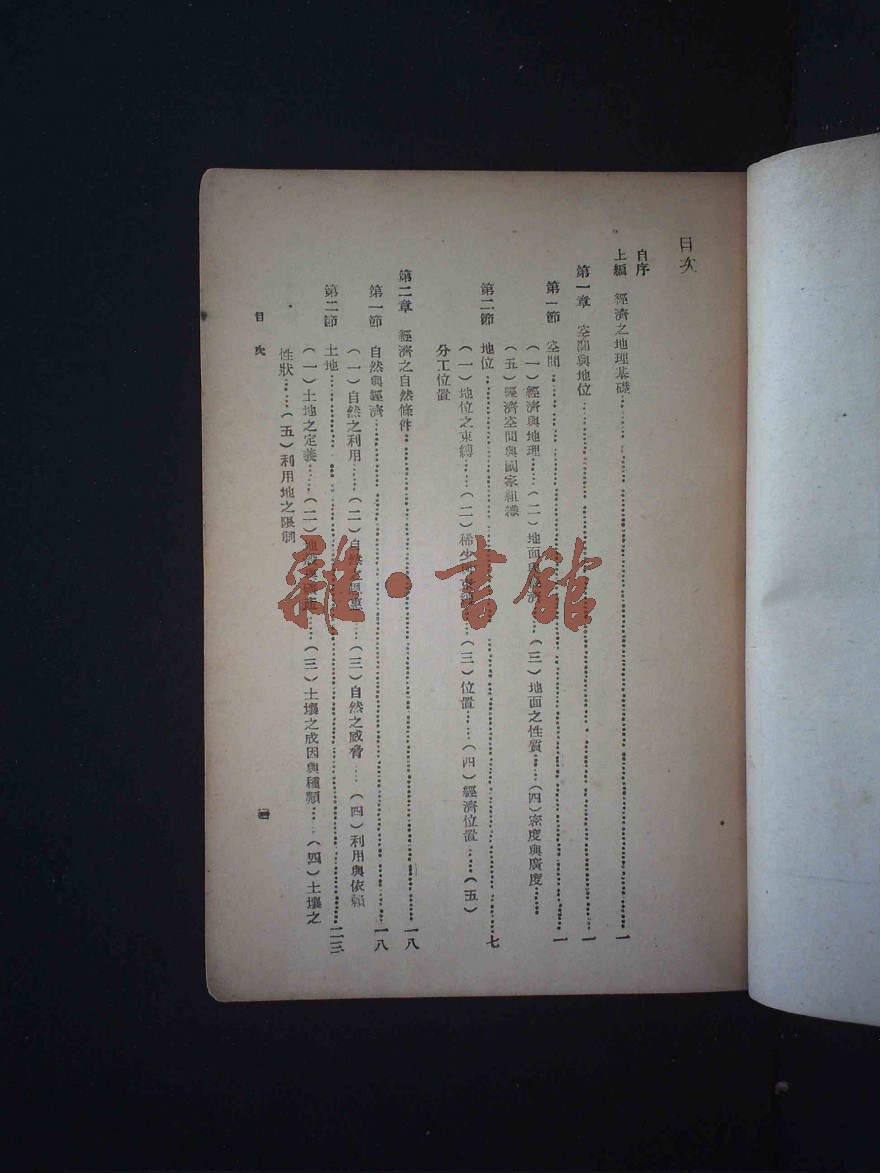 目次
自序
上編 經濟之地理基礎……一
第一章 空間與地位……一
第一節 空間……一
（一）經濟與地理……（二）地面與經濟……（三）地面之性質……（四）密度與廣度……
（五）經濟空間與國家組織
第二節 地位……七
（一）地位之束縛……（二）稀少……（三）位置……（四）經濟位置……（五）
分工位置
第二章 經濟之自然條件……一八
第一節 自然與經濟……一八
（一）自然之利用……（二）自然之……（三）自然之威脅……（四）利用與依賴
第二節 土地……二三
（一）土地之定義……（二）地……（三）土壤之成因與種類……（四）土壤之
性狀……（五）利用地之限制
目次
雜·書館